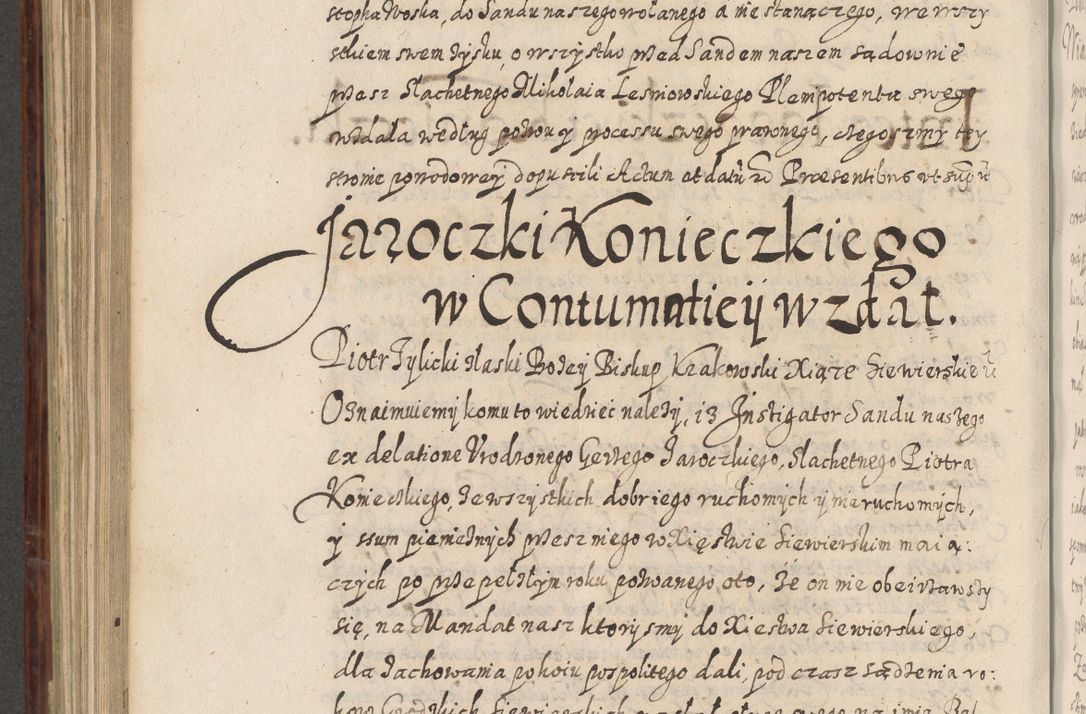 stopha Woska, do Sandu naszego wołanego a nie stanączego, we wszy
stkiem swem zysku, o wszystko przed Sandem naszem sądownie
przesz Slachetnego Mikołaia Lesniowskiego Plempotenta swego
wzdała według pozwu y processu swego prawnego, czegoszmy tey
stronie powodowey dopuscili Actum et datu Præsentibus vt sup
Jaroczki Konieczkiego
w Contumatieij wzdał.
Piotr Tylicki łaski Bożey Biskup Krakowski Xiąze Siewierskie
Oznaimuiemy komu to wiedziec nalezy, iz Instigator Sandu naszego
ex delatione Vrodzonego Gerzego Jaroczkiego, Slachetnego Piotra
Konieczkiego, ze wszystkich dobr iego ruchomych y nieruchomych,
y ssum pieniężnych przesz niego w Xięstwie Siewierskim maią:
czych po przepełzłym roku pozwanego oto, że on nie obeirzawszy
się, na Mandat nasz ktorysmy do Xiestwa Siewierskiego,
dla zachowania pokoiu pospolitego dali, pod czasz sądzenia ro: